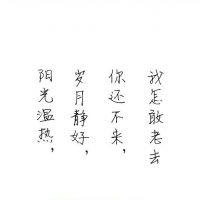 阳光温热，
岁月静好，
你还不来，
我怎敢老去